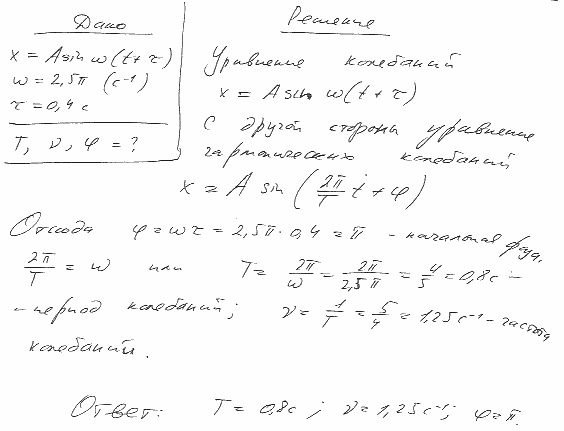 Дано
x = A sin ω(t + τ)
ω = 2,5π (с⁻¹)
τ = 0,4 с
T, ν, φ = ?
Решение
Уравнение колебаний
x = A sin ω(t + τ)
С другой стороны уравнение
гармонических колебаний
x = A sin (2π/T t + φ)
Отсюда φ = ωτ = 2,5π · 0,4 = π - начальная фаза.
2π/T = ω или T = 2π/ω = 2π/2,5π = 4/5 = 0,8 с -
- период колебаний; ν = 1/T = 5/4 = 1,25 с⁻¹ - частота
колебаний.
Ответ: T = 0,8 с; ν = 1,25 с⁻¹; φ = π.